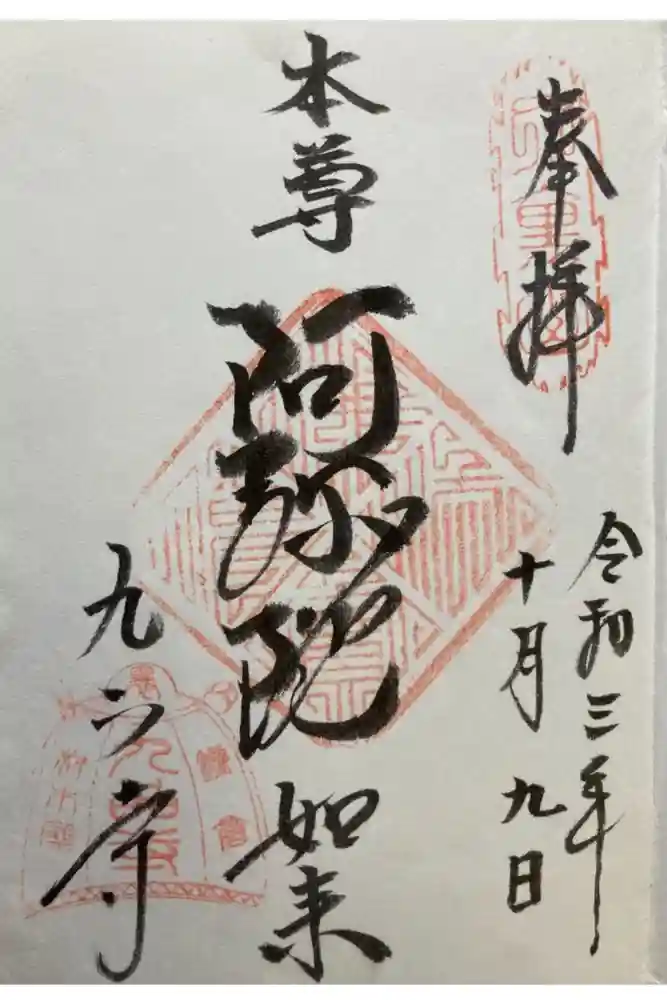 奉拝
令和三年
十月九日
本尊
阿弥陀
如来
九品寺